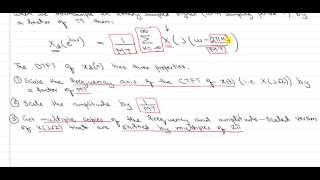 by
a factor of M then:
X_d(e^{jω}) = 1/MT ∞Σk=-∞ X(j(ω-2πk)/MT)
The DTFT of x_d(n) has three properties.
① Scale the frequency axis of the CTFT of x(t) (i.e. X(jΩ)) by
a factor of MT
② Scale the amplitude by 1/MT
③ Get multiple copies of the frequency and amplitude-scaled version
of X(jΩ) that are shifted by multiples of 2π